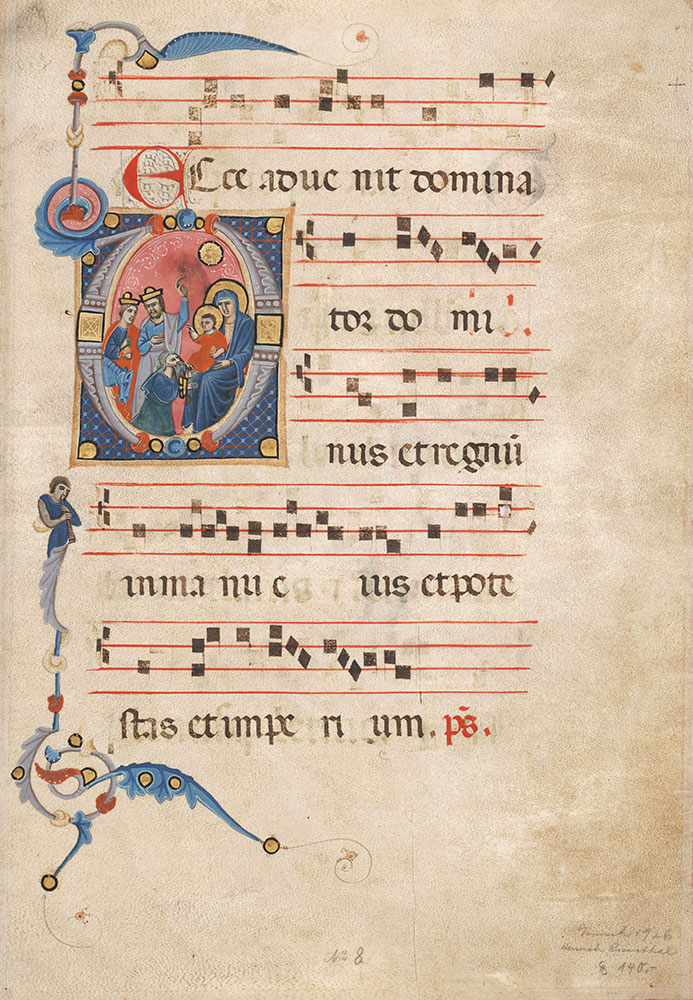 Ecce adue nit domina
tor do mi
nus et regnū
in ma nu e ius et pote
stas et impe ri um. p̄s.
No 8
1926
140.-